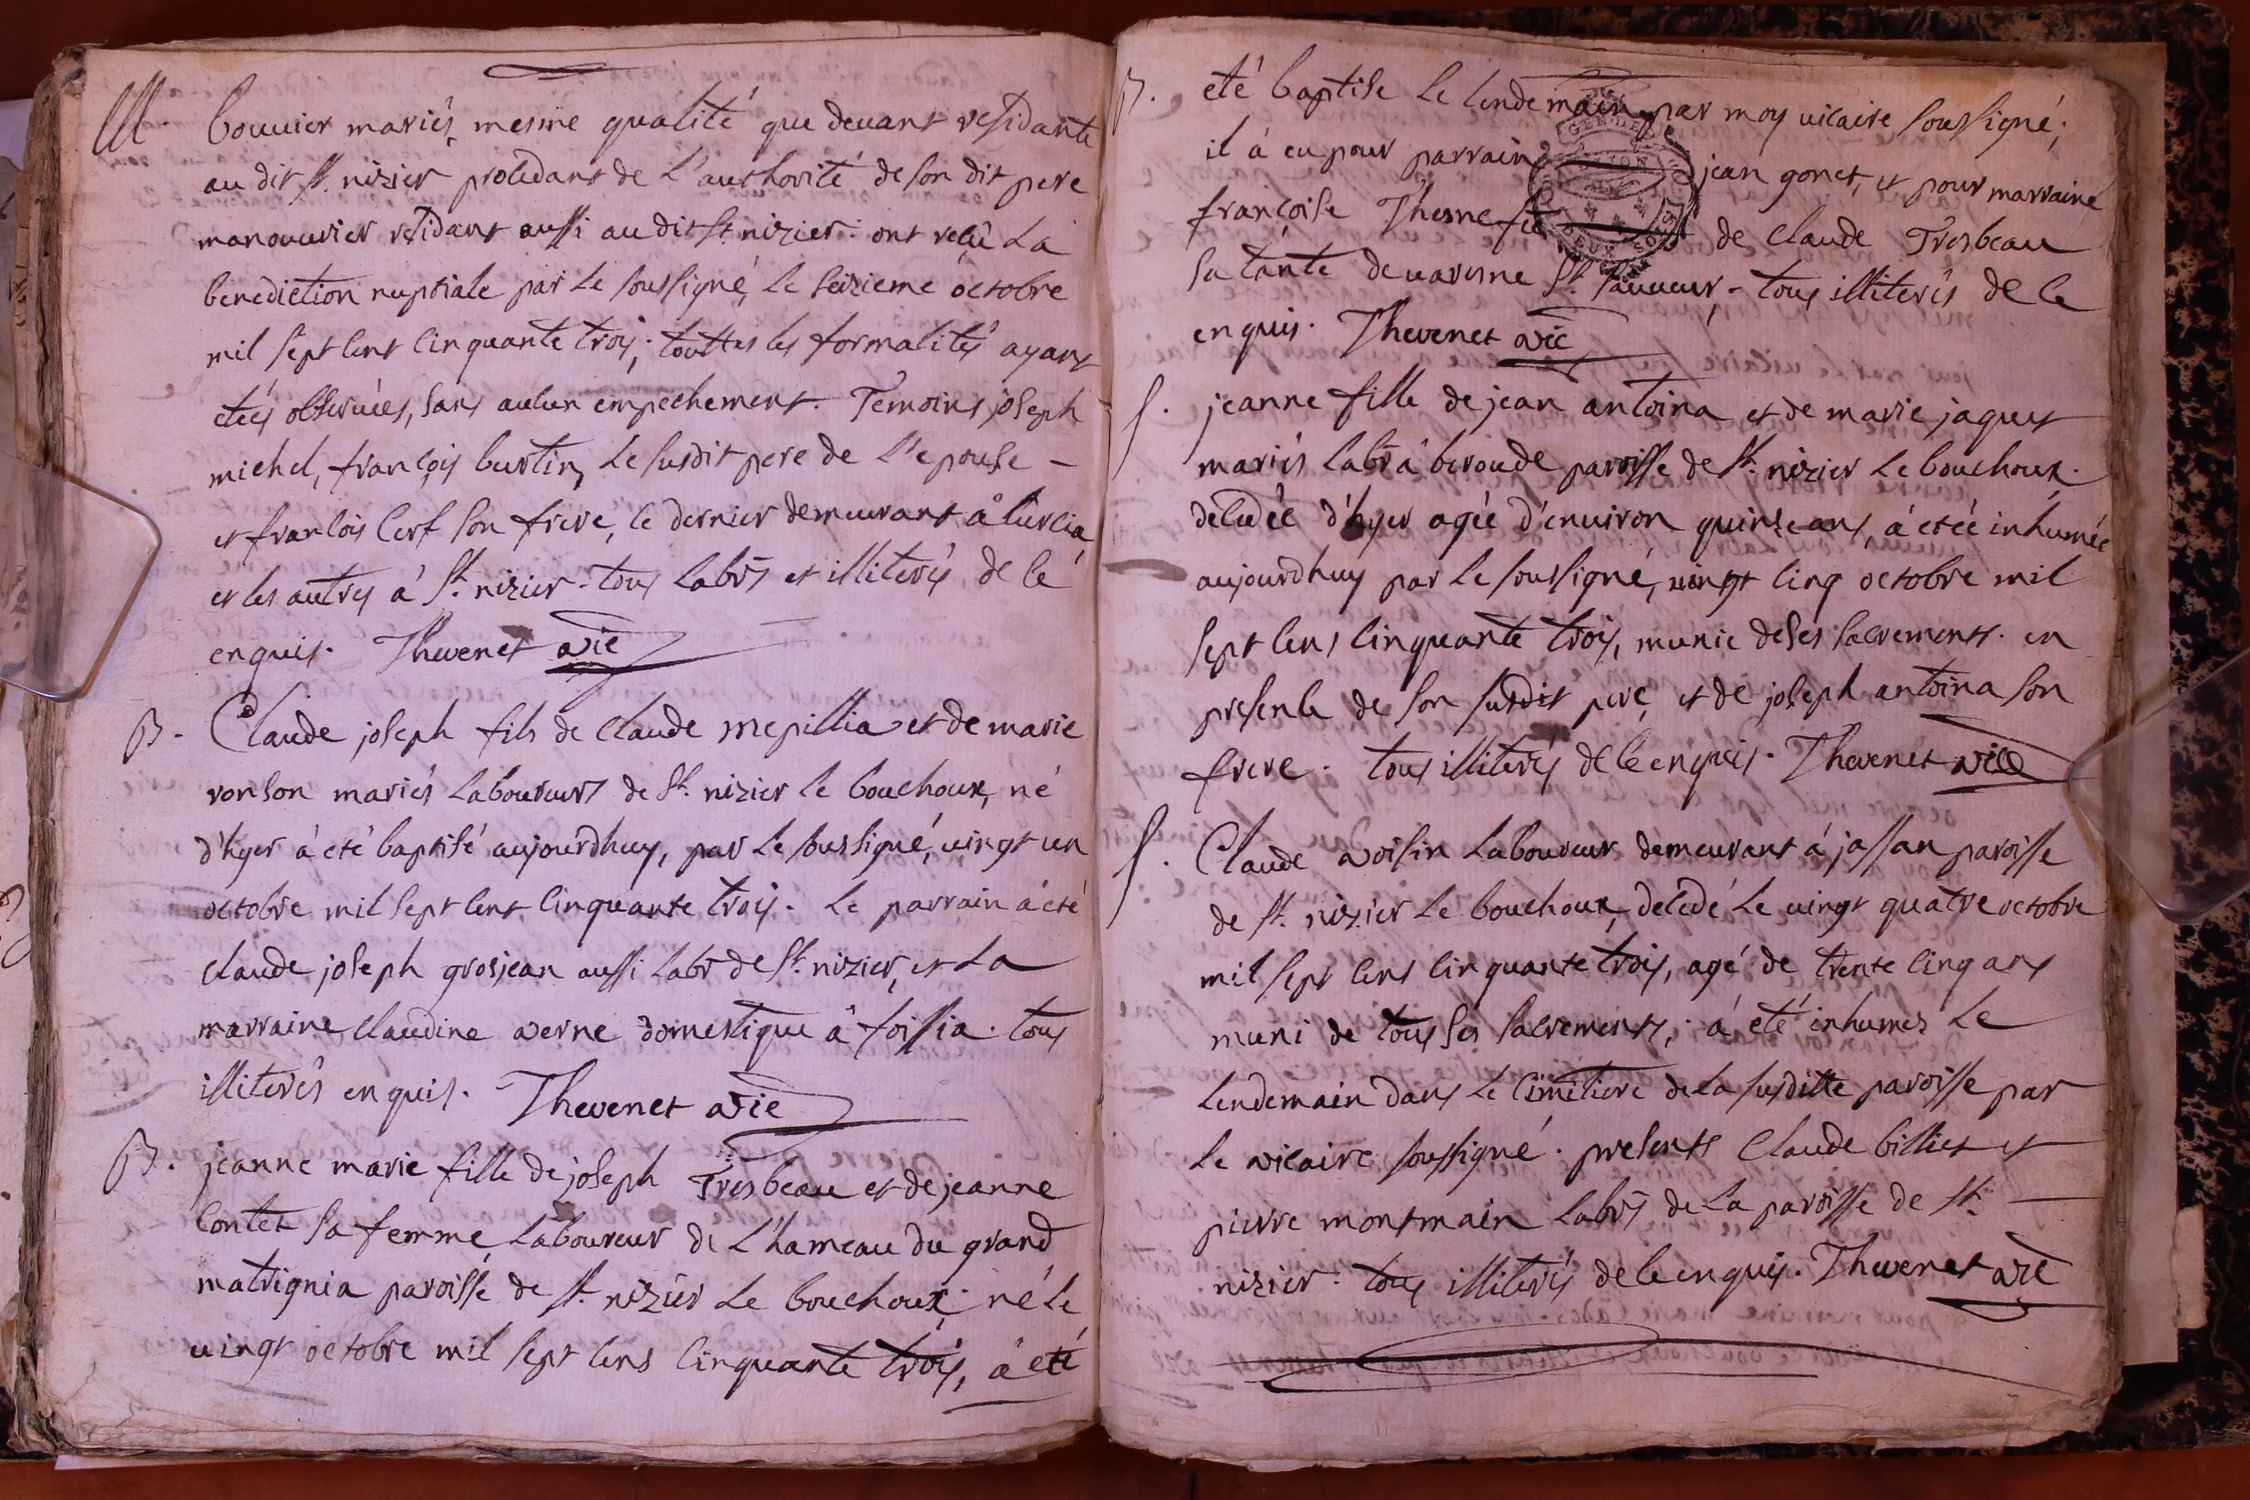 M. bouvier mariés, mesme qualité que devant residante
au dit st. nizier procedant de l'authorité de son dit pere
manouvrier residant aussi au dit st. nizier. ont reçû la
benediction nuptiale par le soussigné, le seizieme octobre
mil sept cent cinquante trois; touttes les formalités ayant
étées observées, sans aucun empechement. Temoins joseph
michel, françois burtin, le susdit pere de l'epouse –
et francois cerf son frere, ce dernier demeurant â Curcia,
et les autres á st. nizier. tous labrs et illiterés de ce
enquis. Thevenet vic
B. Claude joseph fils de claude mepillia et de marie
ronson mariés laboureurs de st. nizier le bouchoux, né
d'hyer á eté baptisé aujourdhuy, par le soussigné, vingt un
octobre mil sept cent cinquante trois. le parrain á eté
claude joseph grosjean aussi labr de st. nizier, et la
marraine claudine verne domestique â foissia. tous
illiterés enquis. Thevenet vic
B. jeanne marie fille de joseph Tresbeau et de jeanne
contet sa femme laboureur de l'hameau du grand
matrignia paroisse de st. nizier le bouchoux, né le
vingt octobre mil sept cens cinquante trois, á eté
B. eté baptise le lendemain par moy vicaire soussigné;
il á eu pour parrain jean gonet, et pour marraine
françoise Thesne de claude Tresbeau
sa tante de varesne st. sauveur. tous illiterés de ce
enquis. Thevenet vic
S. jeanne fille de jean antoina et de marie jaquet
mariés labrs â beroude paroisse de st. nizier le bouchoux.
decedée d'hyer agée d'environ quinse ans, á etée inhumée
aujourdhuy par le soussigné, vingt cinq octobre mil
sept cens cinquante trois, munie de ses sacrements. en
presence de son susdit pere, et de joseph antoina son
frere. tous illiterés de ce enquis. Thevenet vic
S. Claude voisin laboureur demeurant á jassan paroisse
de st. nizier le bouchoux, decedé le vingt quatre octobre
mil sept cens cinquante trois, agé de trente cinq ans
muni de tous ses sacrements; á eté inhumez le
lendemain dans le cimitiere de la susditte paroisse par
le vicaire soussigné. presents claude billiet et
pierre montmain labrs de la paroisse de st. —
nizier. tous illiterés de ce enquis. Thevenet vic